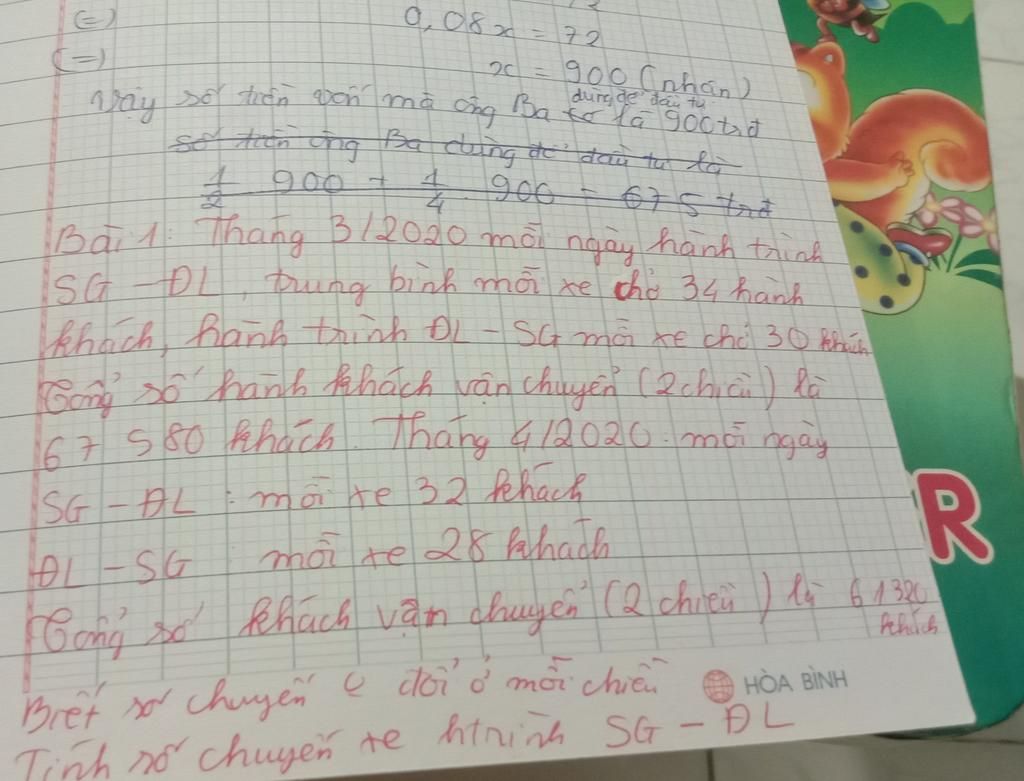 (=) 0,08x = 72
(=) x = 900 (nhận)
Vậy số tiền vốn mà ông Ba dùng để đầu tư là 900trđ
số tiền ông Ba dùng để đầu tư là
1/2 900 + 1/4 900 = 675 trđ
Bài 1: Tháng 3/2020 mỗi ngày hành trình
SG - ĐL, trung bình mỗi xe chở 34 hành
khách, hành trình ĐL - SG mỗi xe chở 30 khách
Tổng số hành khách vận chuyển (2 chiều) là
67 580 khách. Tháng 4/2020 mỗi ngày
SG - ĐL : mỗi xe 32 khách
ĐL - SG mỗi xe 28 khách
Tổng số khách vận chuyển (2 chiều) là 61320
khách
Biết số chuyến đổi ở mỗi chiều
HÒA BÌNH
Tính số chuyến xe htrình SG - ĐL
R